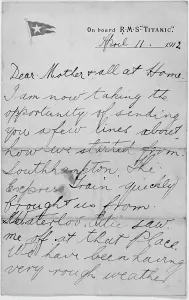 On board R·M·S "TITANIC."
April 11. 1912
Dear Mother & all at Home.
I am now taking the
opportunity of sending
you a few lines about
how we started from
Southhampton, The
Express Train quickly
brought us from
Waterloo. saw
me of at that Place.
We have been having
very rough weather